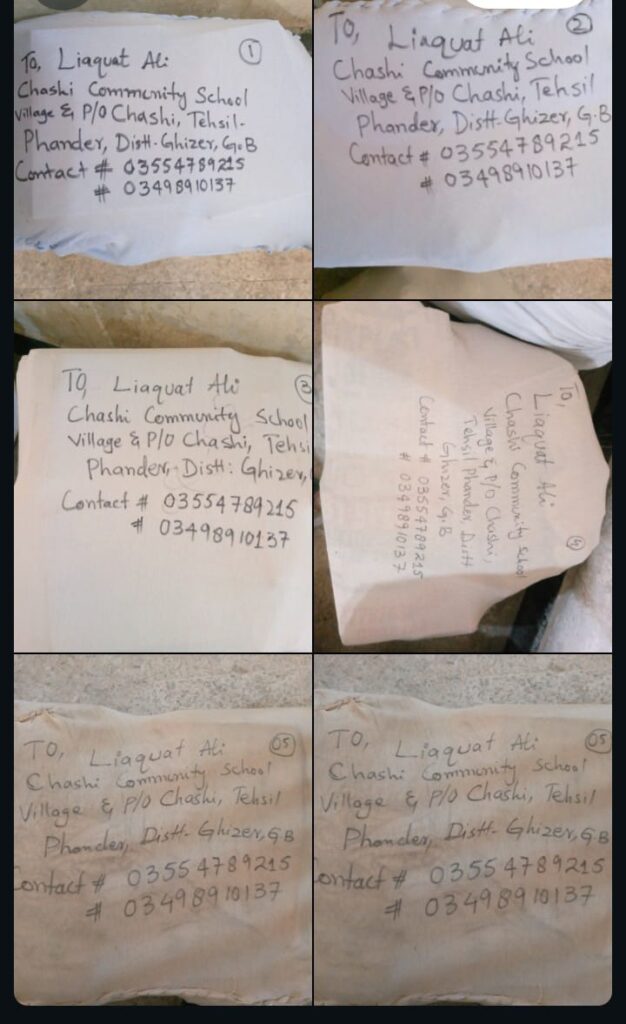 ①
To, Liaquat Ali
Chashi Community School
Village & P/O Chashi, Tehsil-
Phander, Distt-Ghizer, G.B
Contact # 03554789215
# 03498910137
②
To, Liaquat Ali
Chashi Community School
Village & P/O Chashi, Tehsil
Phander, Distt-Ghizer, G.B
Contact # 03554789215
# 03498910137
③
To, Liaquat Ali
Chashi Community School
Village & P/O Chashi, Tehsi
Phander, Distt: Ghizer,
Contact # 03554789215
# 03498910137
④
To,
Liaquat Ali
Chashi Community School
Village & P/O Chashi,
Tehsil Phander, Distt
Ghizer, G.B
Contact # 03554789215
# 03498910137
05
To, Liaquat Ali
Chashi Community School
Village & P/O Chashi, Tehsil
Phander, Distt-Ghizer, G.B
Contact # 03554789215
# 03498910137
05
To, Liaquat Ali
Chashi Community School
Village & P/O Chashi, Tehsil
Phander, Distt-Ghizer, G.B
Contact # 03554789215
# 03498910137